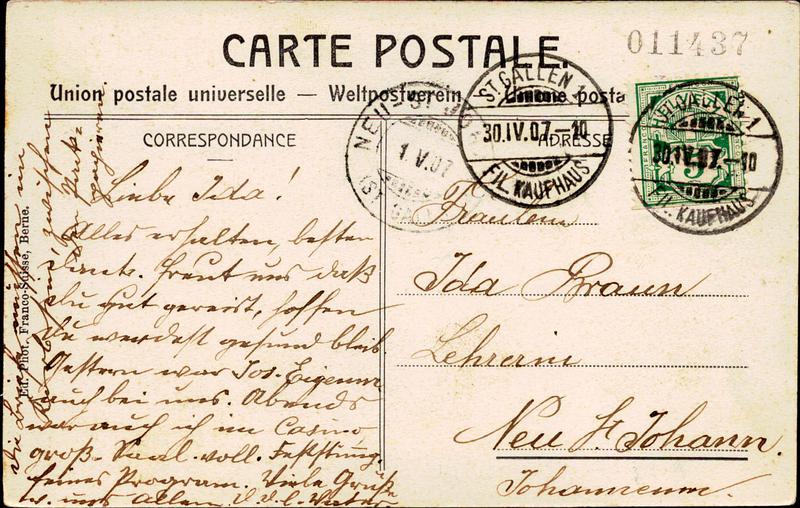 CARTE POSTALE.
011437
Union postale universelle — Weltpostverein — Unione posta
CORRESPONDANCE
ADRESSE
ST. GALLEN 1
30.IV.07.-10
FIL. KAUFHAUS
NEU ST.
1.V.07
(ST. GALLEN)
HELVETIA
5
GALLEN 1
30.IV.07.-10
FIL. KAUFHAUS
Liebe Ida!
Alles erhalten, besten
Dank. Freut uns daß
Du gut gereist, hoffen
Du werdest gesund bleib.
Gestern war Jos. Eigenm
auch bei uns. Abends
war auch ich im Casino
groß. Saal voll.
feines Program. Viele Grüße
v. uns allen
Fräulein
Ida Braun
Lehrerin
Neu St. Johann.
Ed. Phot. Franco-Suisse, Berne.